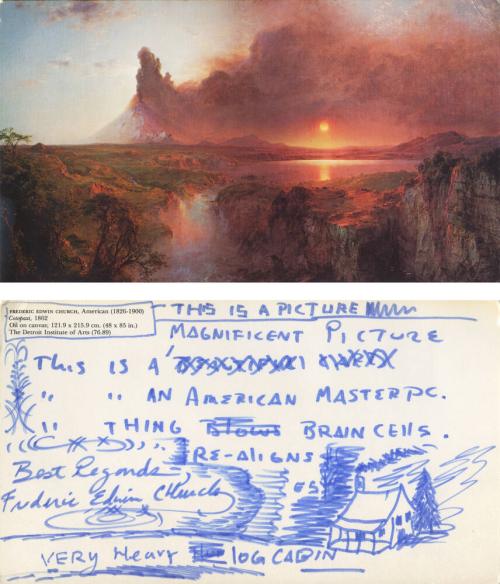 FREDERIC EDWIN CHURCH, American (1826-1900)
Cotopaxi, 1862
Oil on canvas; 121.9 x 215.9 cm. (48 x 85 in.)
The Detroit Institute of Arts (76.89)
THIS IS A PICTURE
MAGNIFICENT PICTURE
This IS A
" " AN AMERICAN MASTERPC.
" THING Blows BRAIN CELLS.
RE-ALIGNS
Best Regards-
Frederic Edwin Church
VERY Heavy LOG CABIN